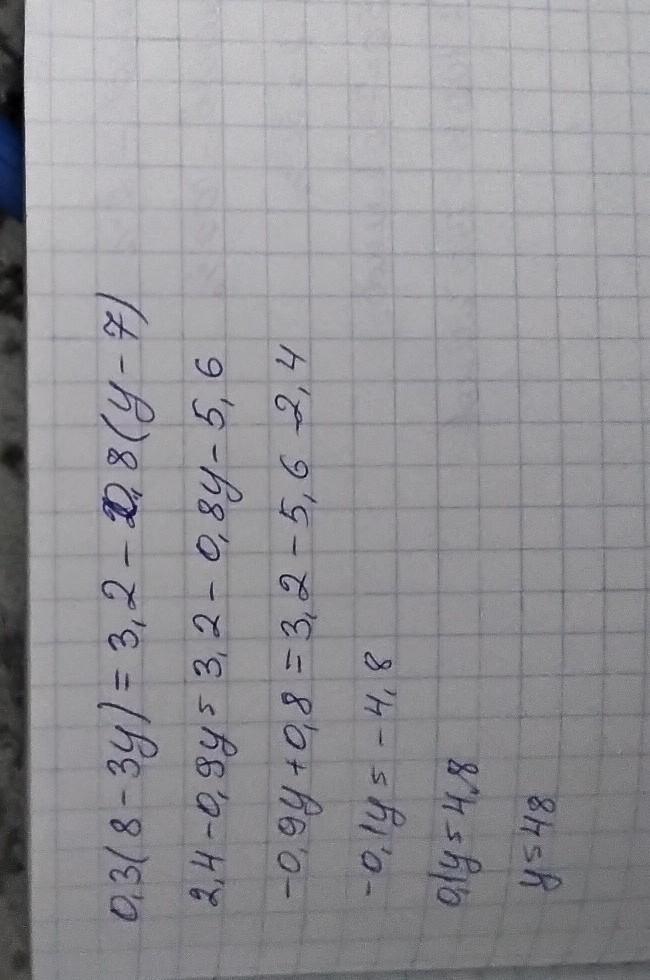 0,3(8-3y)=3,2-0,8(y-7)
2,4-0,9y=3,2-0,8y-5,6
-0,9y+0,8=3,2-5,6-2,4
-0,1y=-4,8
0,1y=4,8
y=48